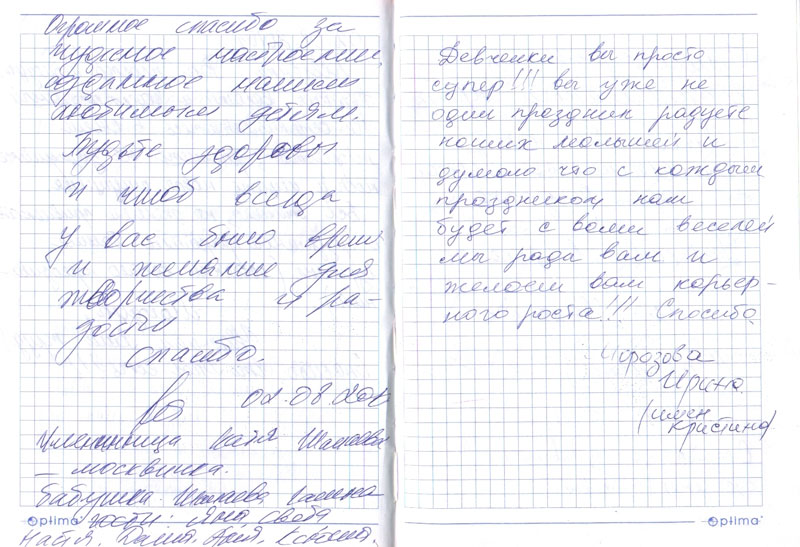 Огромное спасибо за
чудесное настроение
созданное нашим
любимым детям.
Будьте здоровы
и чтоб всегда
у вас было время
и желание для
творчества и ра-
дости
спасибо.
02.08.20
Именинница Катя
– москвичка.
бабушка
гости: Яна, Света
Катя, Даша,
Optima
Девчонки вы просто
супер!!! вы уже не
один праздник радуете
наших малышей и
думаю что с каждым
праздником нам
будет с вами веселей
мы рада вам и
желаем вам карьер-
ного роста!!! Спасибо.
Ирина
(имен
Кристина)
Optima